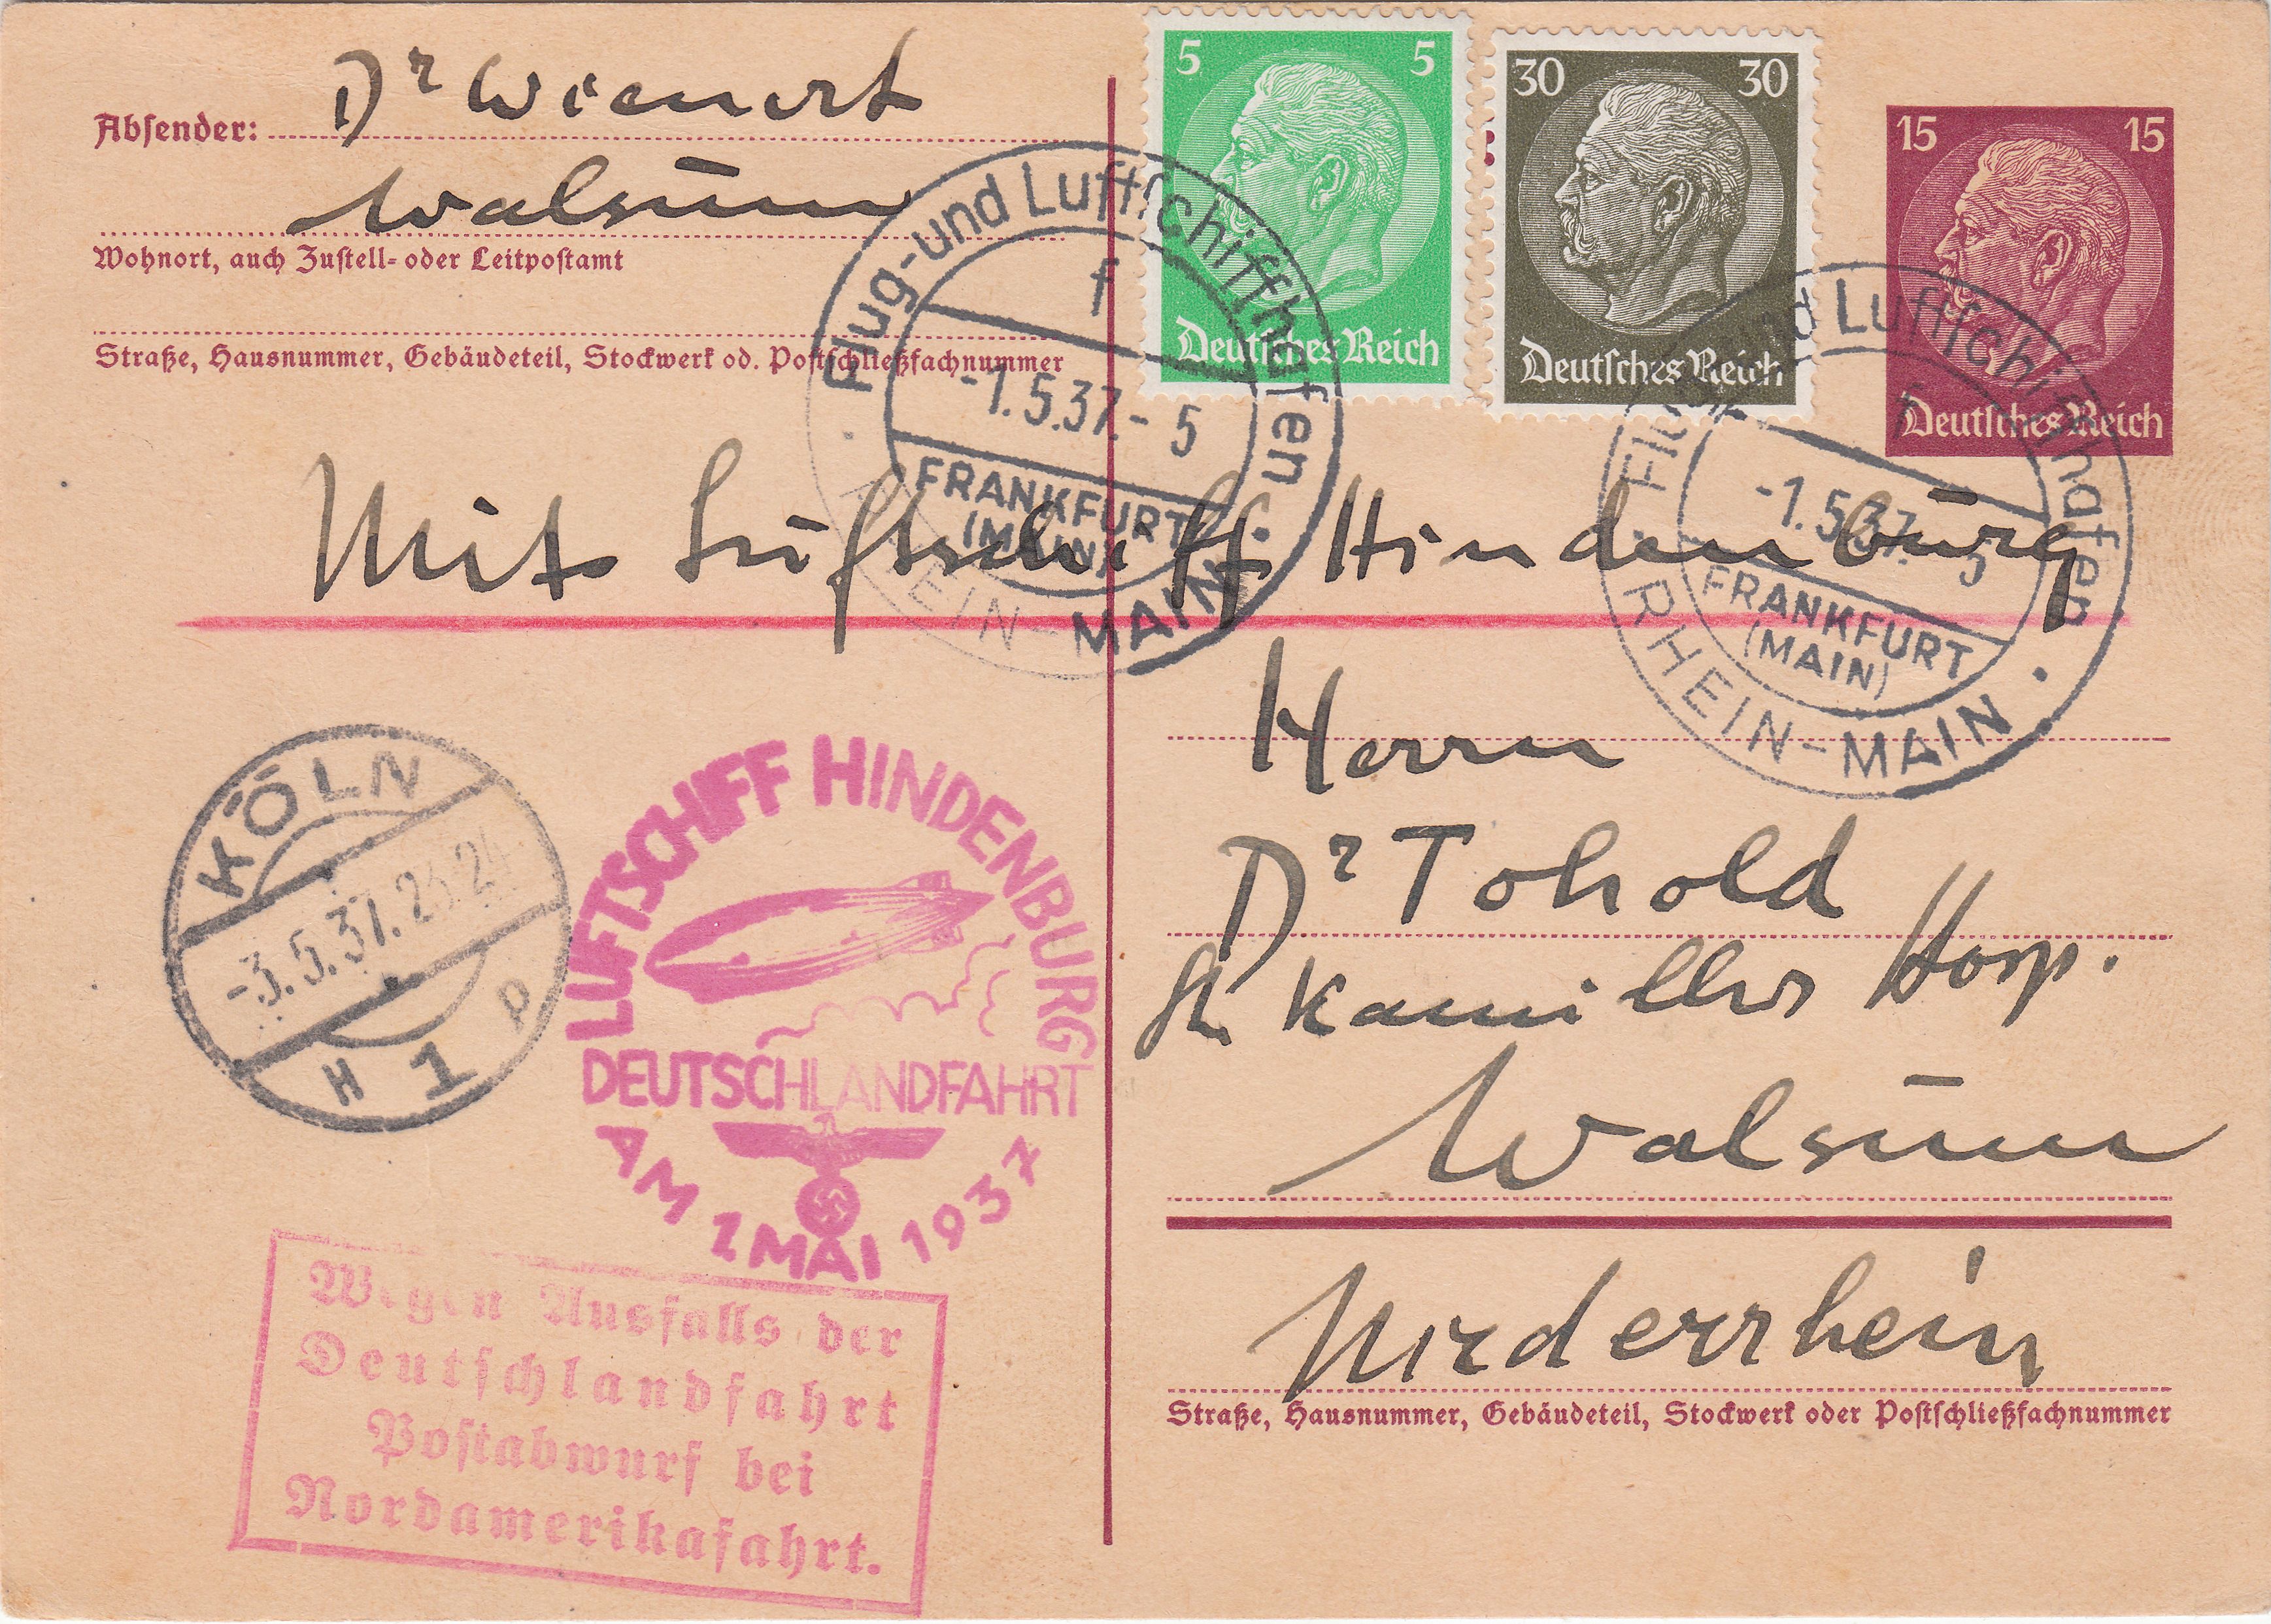 Dr Wienert
Absender:
Walsum
Wohnort, auch Zustell- oder Leitpostamt
Straße, Hausnummer, Gebäudeteil, Stockwerk od. Postschließfachnummer
5 5
Deutsches Reich
30 30
Deutsches Reich
15 15
Deutsches Reich
Flug- und Luftschiffhafen
f
-1.5.37.- 5
FRANKFURT
(MAIN)
RHEIN-MAIN
Flug- und Luftschiffhafen
f
-1.5.37.- 5
FRANKFURT
(MAIN)
RHEIN-MAIN
Mit Luftschiff Hindenburg
KÖLN
-3.5.37.23-24
H 1 p
LUFTSCHIFF HINDENBURG
DEUTSCHLANDFAHRT
AM 1 MAI 1937
Wegen Ausfalls der
Deutschlandfahrt
Postabwurf bei
Nordamerikafahrt.
Herrn
Dr Tohold
St Kamillus Hosp.
Walsum
Niederrhein
Straße, Hausnummer, Gebäudeteil, Stockwerk oder Postschließfachnummer